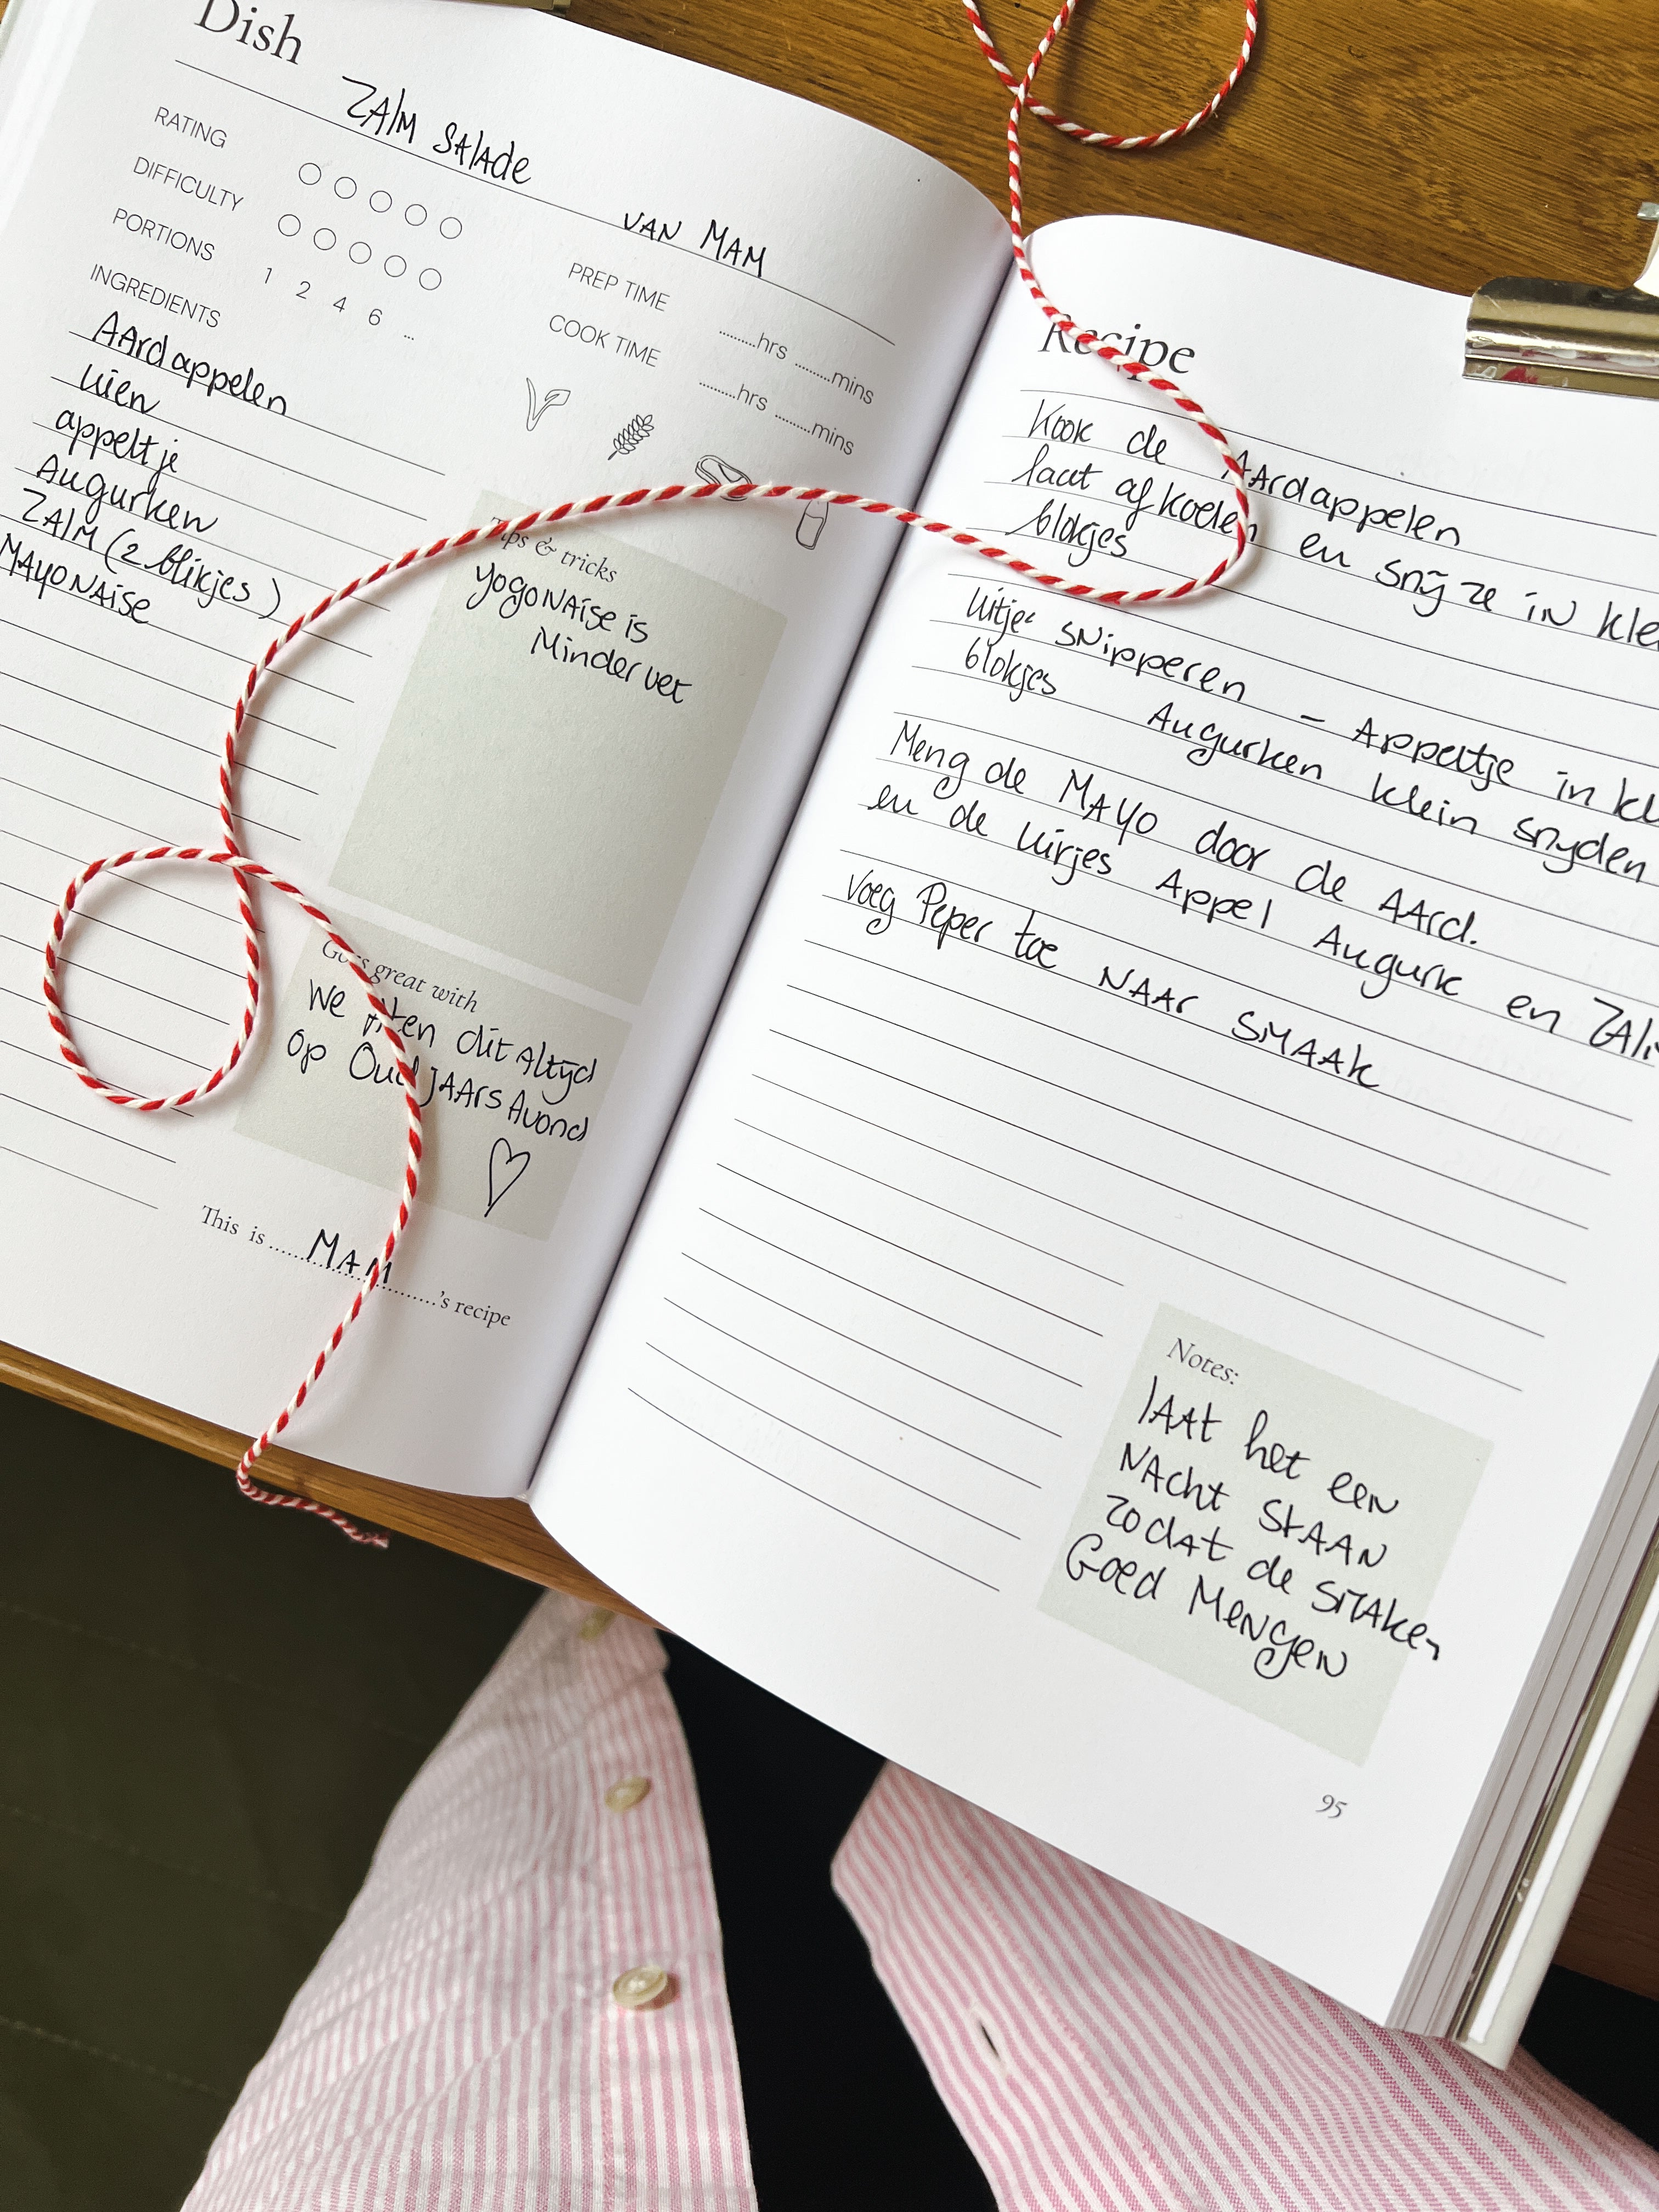 Dish
ZAlM SAlAde
VAN MAM
RATING
DIFFICULTY
PORTIONS
1 2 4 6 ...
INGREDIENTS
PREP TIME ........hrs ........mins
COOK TIME ........hrs ........mins
AArdappelen
uien
appeltje
Augurken
ZAlM (2 blikjes)
MAyoNAise
Tips & tricks
yogoNAise is
Minder vet
Goes great with
We Aten dit Altijd
op OudJAArsAvond
This is ......MAM..........'s recipe
Recipe
Kook de AArdappelen
laat afkoelen en snij ze iN kle
blokjes
Uitjes sNipperen – Appeltje in kl
blokjes Augurken klein snyden
Meng de MAyo door de AArd.
en de Uitjes Appel Augurk en ZAlm
Voeg Peper toe NAAr SMAAk
Notes:
lAAt het eeN
NAcht StAAN
zodAt de sMAken
Goed MeNgeN
95